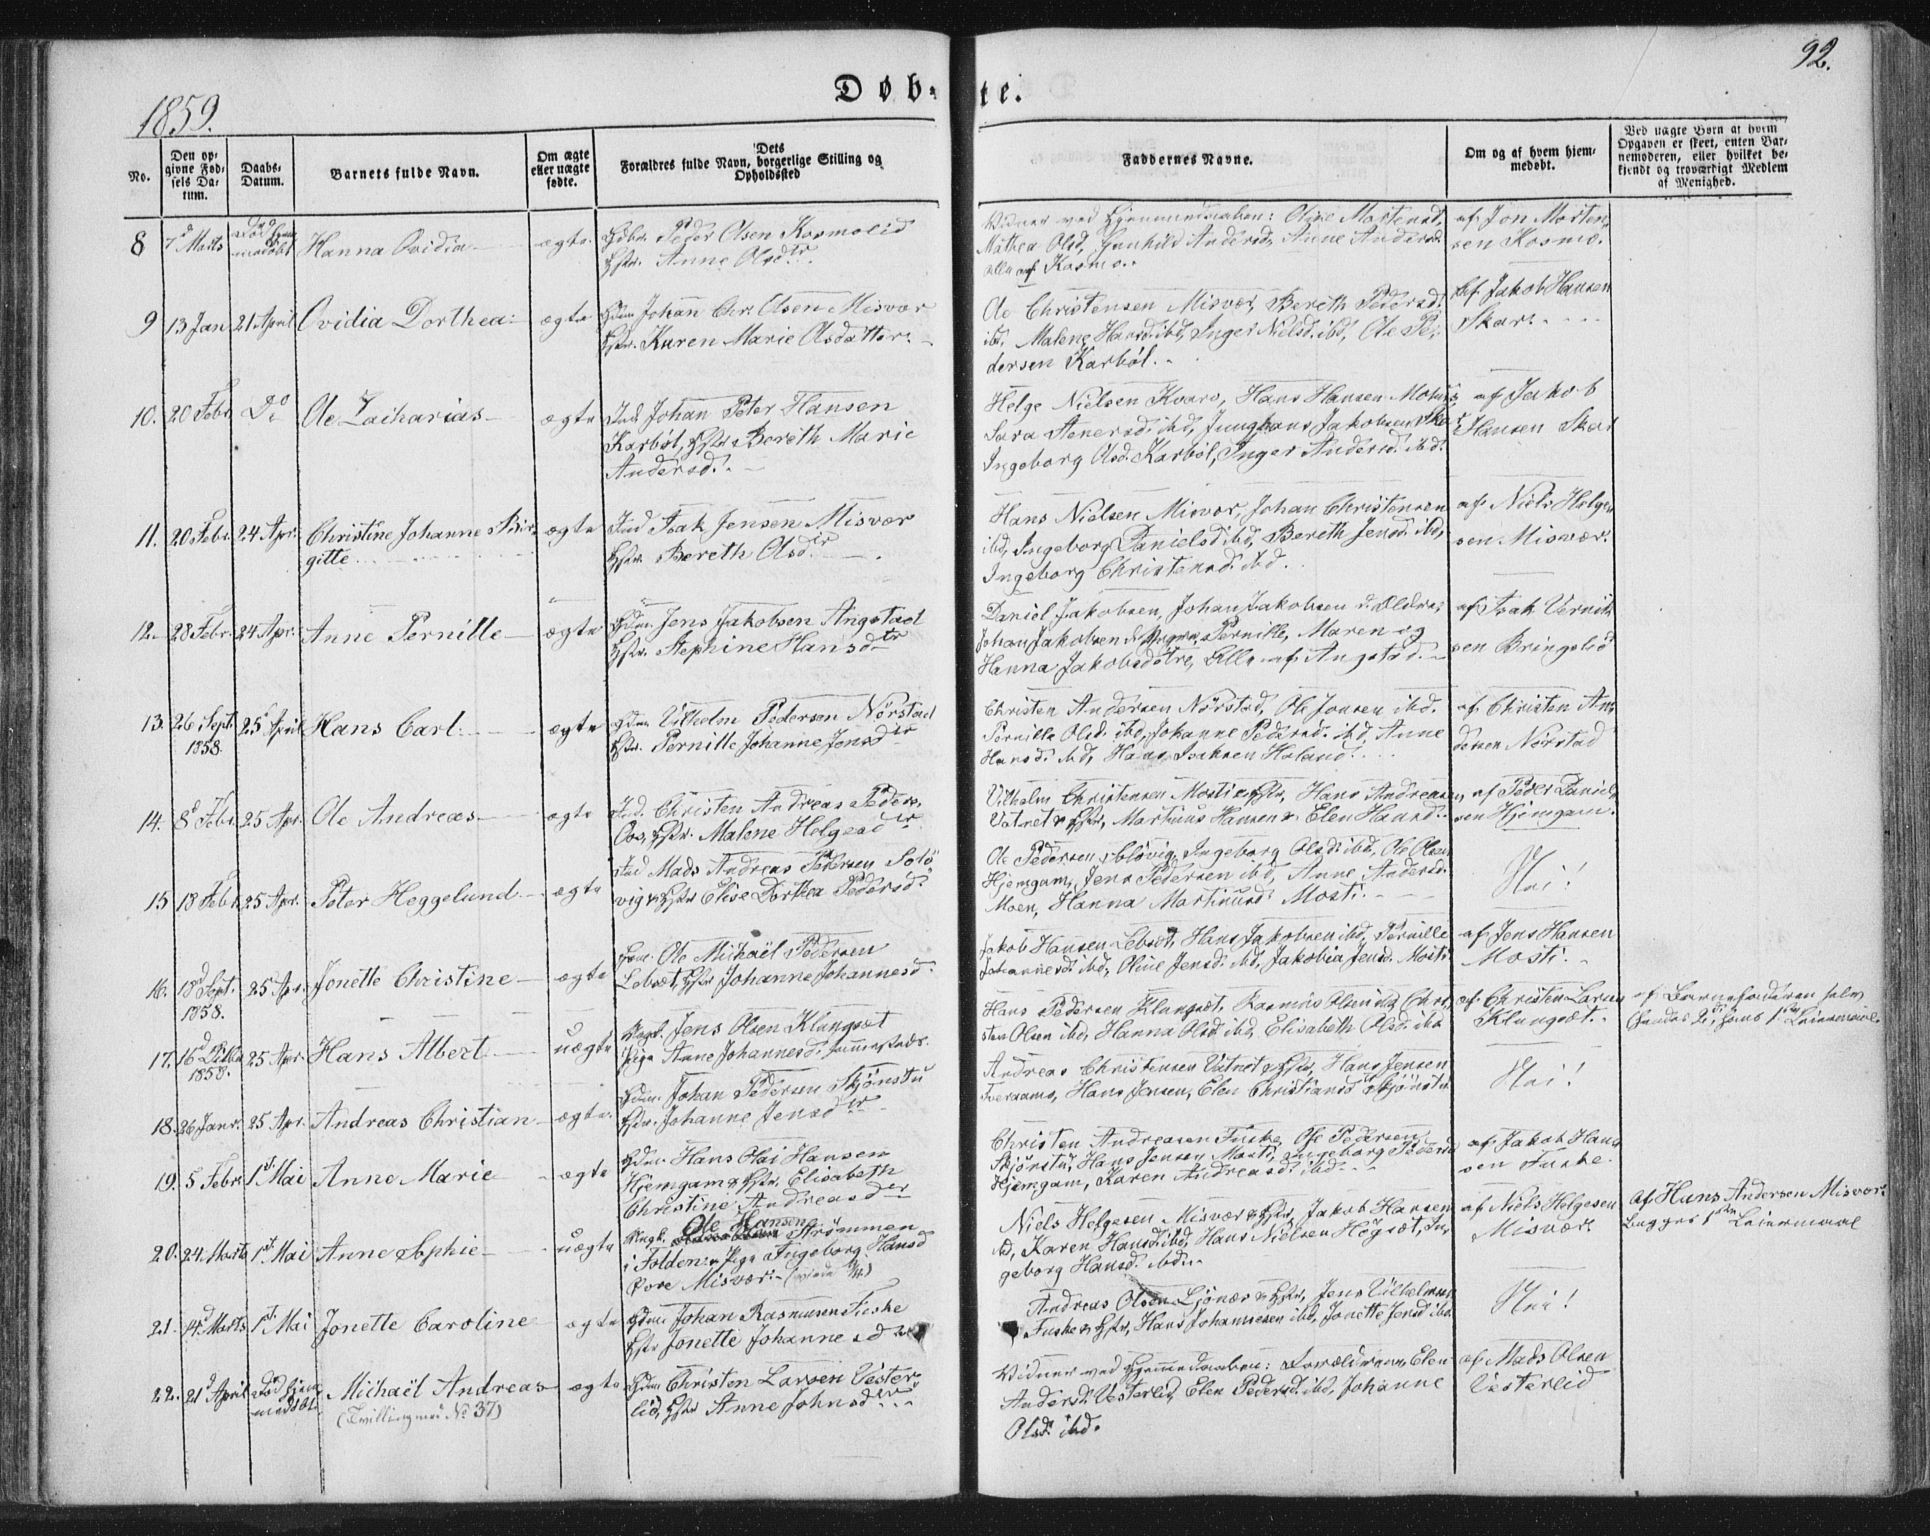 92.
Døb-te.
1859.
No.
Den op-
givne Fød-
sels Da-
tum.
Daabs-
Datum.
Barnets fulde Navn.
Om ægte
eller uægte
fødte.
Dets
Forældres fulde Navn, borgerlige Stilling og
Opholdssted
Faddernes Navne.
Om og af hvem hjem-
medøbt.
Ved uægte Børn af hvem
Opgaven er skeet, enten Bar-
nemoderen, eller hvilket be-
kjendt og troværdigt Medlem
af Menighed.
8 7d Marts Død hjem-
medøbt Hanna Ovidia ægte
Peder Olsen Kosmolid
Hstr. Anne Olsdtr.
Vidner ved Hjemmedaaben: Oline Mortensd.
Mathea Olsd, Gunhild Andersd, Anne Andersd.
alle af Kosmo.
af Jon Morten-
sen Kosmo.
9 13 Jan 21 April Ovidia Dorthea ægte
Gdm Johan Chr. Olsen Misvær
Hstr. Karen Marie Olsdatter.
Ole Christensen Misvær, Bereth Pedersd.
ibd, Malene Hansd. ibd, Inger Nielsd. ibd, Ole Pe-
dersen Karbøl.
Af Jakob Hansen
Skar.
10. 20 Febr Do Ole Zacharias ægte
Ind. Johan Peter Hansen
Karbøl, Hstr Bereth Marie
Andersd.
Helge Nielsen Kvarv, Hans Hansen
Sara Stenersd. ibd, Junghans Jakobsen Skar
Ingeborg Olsd. Karbøl, Inger Andersd. ibd.
af Jakob
Hansen Skar
11. 20 Febr 24 Apr. Christine Johanne Bir-
gitte ægte
Ind Isak Jensen Misvær
Hstr. Bereth Olsdtr.
Hans Nielsen Misvær, Johan Christensen
ibd, Ingeborg Danielsd ibd, Bereth Jensd. ibd,
Ingeborg Christensd. ibd.
af Niels Helge-
sen Misvær.
12. 28 Febr. 24 Apr. Anne Pernille ægte
Gdm. Jens Jakobsen Angstad
Hstr. Stephine Hansdtr
Daniel Jakobsen, Johan Jakobsen d. Ældre,
Johan Jakobsen d. Yngre, Pernille, Maren og
Hanna Jakobsdøtre, Alle af Angstad.
af Isak
sen Bringslid
13. 26 Sept.
1858. 25d April Hans Carl. ægte
Gdm Vilhelm Pedersen Nørstad
Hstr. Pernille Johanne Jensdtr
Christen Andersen Nørstad, Ole Jonsen ibd.
Pernille Olsd. ibd, Johanne Pedersd. ibd, Anne
Hansd. ibd, Hans Isaksen Holand.
af Christen An-
dersen Nørstad
14. 8d Febr 25 Apr. Ole Andreas ægte
Ind. Christen Andreas Peders.
Hstr. Malene Helgesdtr
Vilhelm Christensen Mosti & Hstr, Hans Andreasen,
Vatnet & Hstr, Martinus Hansen & Elen Hansd.
af Peder Daniel-
sen Hjemgam.
15 18 Febr 25 Apr. Peter Heggelund ægte
Ind Mads Andreas Pedersen Solø-
vig & Hstr Elise Dorthea Pedersd.
Ole Pedersen Ingeborg Olsd. ibd, Ole Olsen
Hjemgam, Jens Pedersen ibd, Anne Andersd.
Moen, Hanna Martinusd. Mosti.
Nei!
16. 18d Sept.
1858. 25 Apr. Jonette Christine ægte
Gdm. Ole Michaël Pedersen
Lebsæt, Hstr Johanne Johannesd.
Jakob Hansen Lebsæt, Hans Jakobsen ibd, Pernille
Johannesd. ibd, Oline Jensd. ibd, Jakobia Jensd. Mosti
af Jens Hansen
Mosti.
17. 16d Decbr
1858. 25 Apr. Hans Albert uægte
Ungk. Jens Olsen Klungset
Pige Anne Johannesd. sammesteds.
Hans Pedersen Klungsæt, Rasmus Olsen ibd, Chri-
sten Olsen ibd, Hanna Olsd ibd, Elisabeth Olsd. ibd
af Christen Larsen
Klungsæt.
af Barnefaderen selv
(hendes 2d, hans 1ste Leiermaal
18. 26 Janr. 25 Apr. Andreas Christian ægte.
Gdm. Johan Pedersen Skjønstu
Hstr. Johanne Jensdtr
Andreas Christensen Vatnet & Hstr, Hans Jensen
Hans Jensen, Elen Christiansd. Skjønstu
Nei!
19. 5 Febr. 1st. Mai Anne Marie ægte
Gdm. Hans Olai Hansen
Hjemgam & Hstr. Elisabeth
Christine Andreasdtr
Christen Andreasen Fuske, Ole Pedersen
Skjønstu, Hans Jensen Mosti, Ingeborg Pedersd
Hjemgam, Karen Andreasd. ibd.
af Jakob Han-
sen Fuske.
20. 24. Marts 1st. Mai Anne Sophie uægte
Ungk. Ole Hansen Strømmen
i Folden & Pige Ingeborg Hansd
Misvær.
Niels Helgesen Misvær & Hstr, Jakob Hansen
ibd, Karen Hansd. ibd, Hans Nielsen Høgsæt, In-
geborg Hansd. ibd.
af Niels Helgesen
Misvær
Af Hans Andersen Misvær.
Begges 1ste Leiermaal
21. 14d Marts 1st. Mai Jonette Caroline ægte
Gdm Johan Rasmusen Fuske
Hstr Jonette Johannesdtr
Andreas Olsen & Hstr, Jens Vilhelmsen
Fuske & Hstr, Hans Johannesen ibd, Jonette Jensd ibd.
Nei!
22. 21d April Død hjem-
medøbt. Michaël Andreas
(Tvilling med No 37) ægte
Gdm Christen Larsen Vester-
lid, Hstr Anne Johnsdtr
Vidner ved Hjemmedaaben: Forældrene, Elen
Andersd. Vesterlid, Elen Pedersd. ibd, Johanne
Olsd. ibd.
af Mads Olsen
Vesterlid